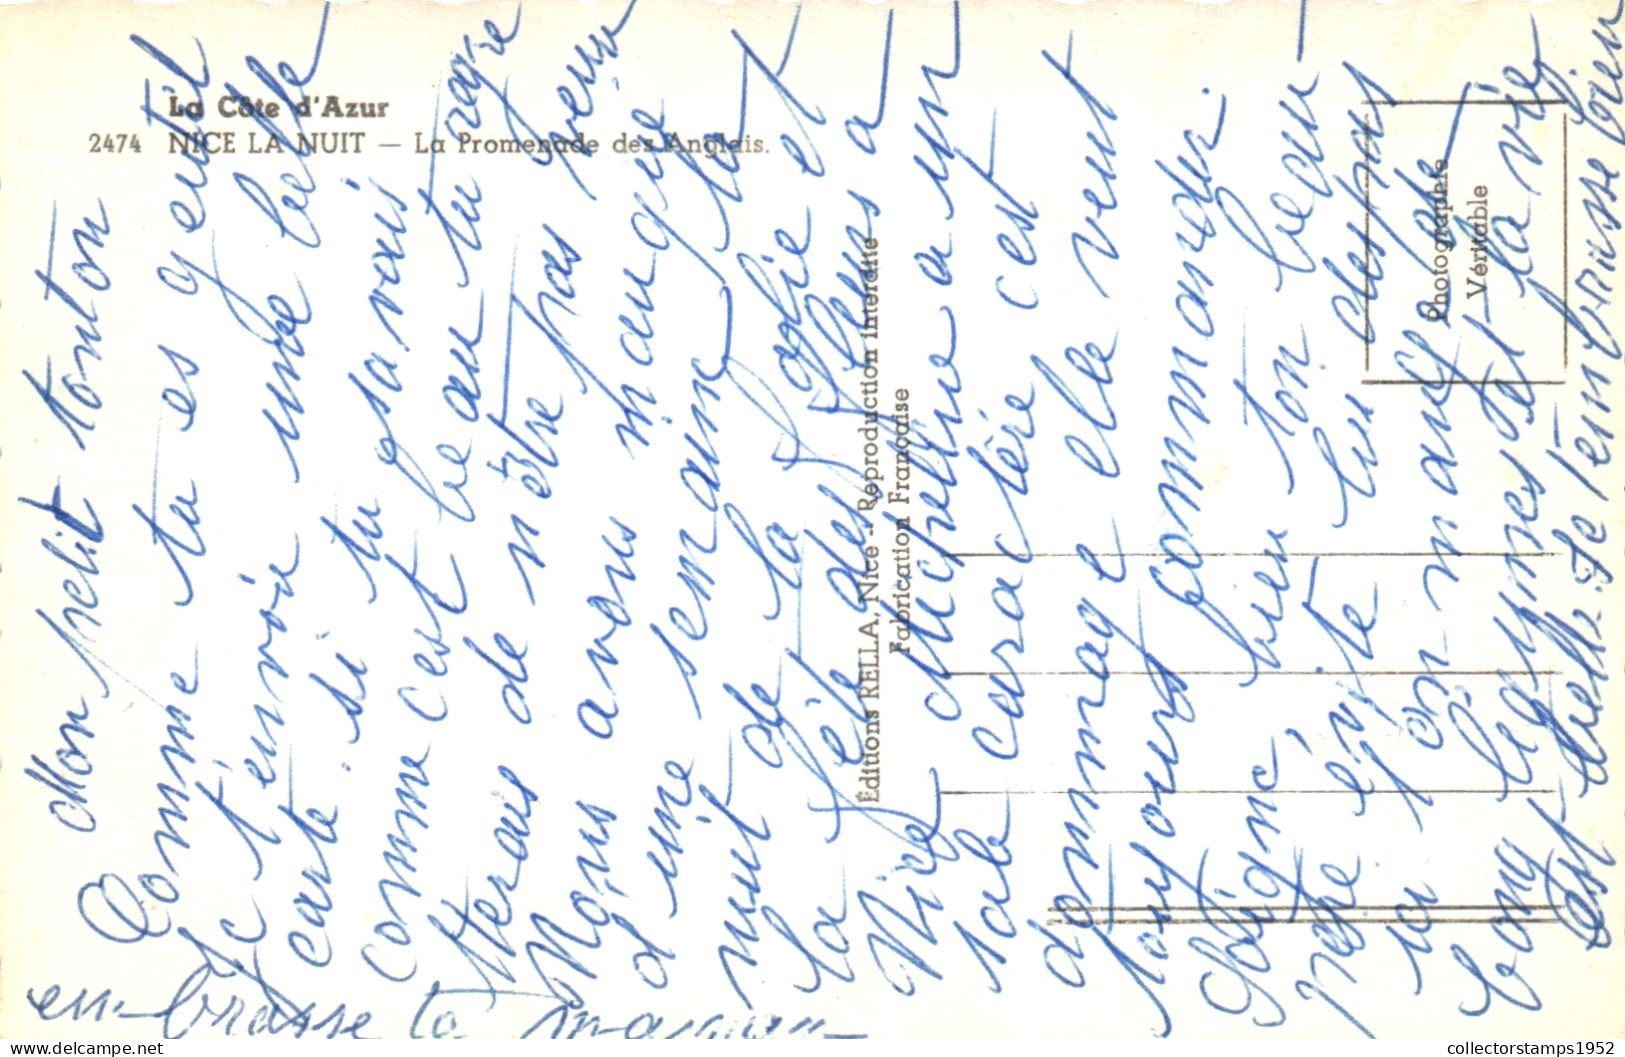 La Côte d'Azur
2474 NICE LA NUIT — La Promenade des Anglais.
Éditions RELLA, Nice - Reproduction interdite
Fabrication Française
Photographie
Véritable
Mon petit tonton
Comme tu es gentil
Je t'envoie une belle
carte. si tu savais
comme cest beau tu regre
tterais de n'être pas venu
Nous avons manqué
d'une semaine la
nuit de la folie et
la fête des fleurs a
Nice Micheline a un
sale caractère cest
dommage elle veut
toujours commander.
Soigne bien ton beau-
père évite lui des pas
ici l'on mange de
bons légumes et la vie
est belle. Je t'embrasse bien
embrasse ta maman
collectorstamps1952